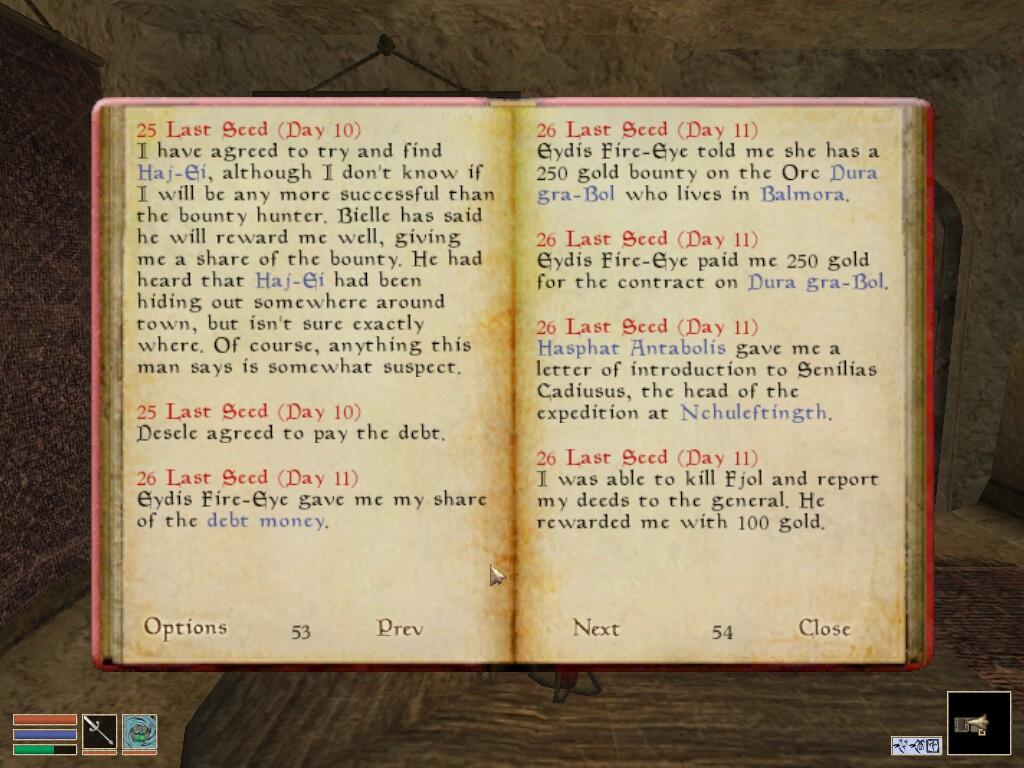 25 Last Seed (Day 10)
I have agreed to try and find
Haj-Ei, although I don't know if
I will be any more successful than
the bounty hunter. Bielle has said
he will reward me well, giving
me a share of the bounty. He had
heard that Haj-Ei had been
hiding out somewhere around
town, but isn't sure exactly
where. Of course, anything this
man says is somewhat suspect.
25 Last Seed (Day 10)
Desele agreed to pay the debt.
26 Last Seed (Day 11)
Eydis Fire-Eye gave me my share
of the debt money.
Options
53
Prev
26 Last Seed (Day 11)
Eydis Fire-Eye told me she has a
250 gold bounty on the Orc Dura
gra-Bol who lives in Balmora.
26 Last Seed (Day 11)
Eydis Fire-Eye paid me 250 gold
for the contract on Dura gra-Bol.
26 Last Seed (Day 11)
Hasphat Antabolis gave me a
letter of introduction to Senilias
Cadiusus, the head of the
expedition at Nchuleftingth.
26 Last Seed (Day 11)
I was able to kill Fjol and report
my deeds to the general. He
rewarded me with 100 gold.
Next
54
Close